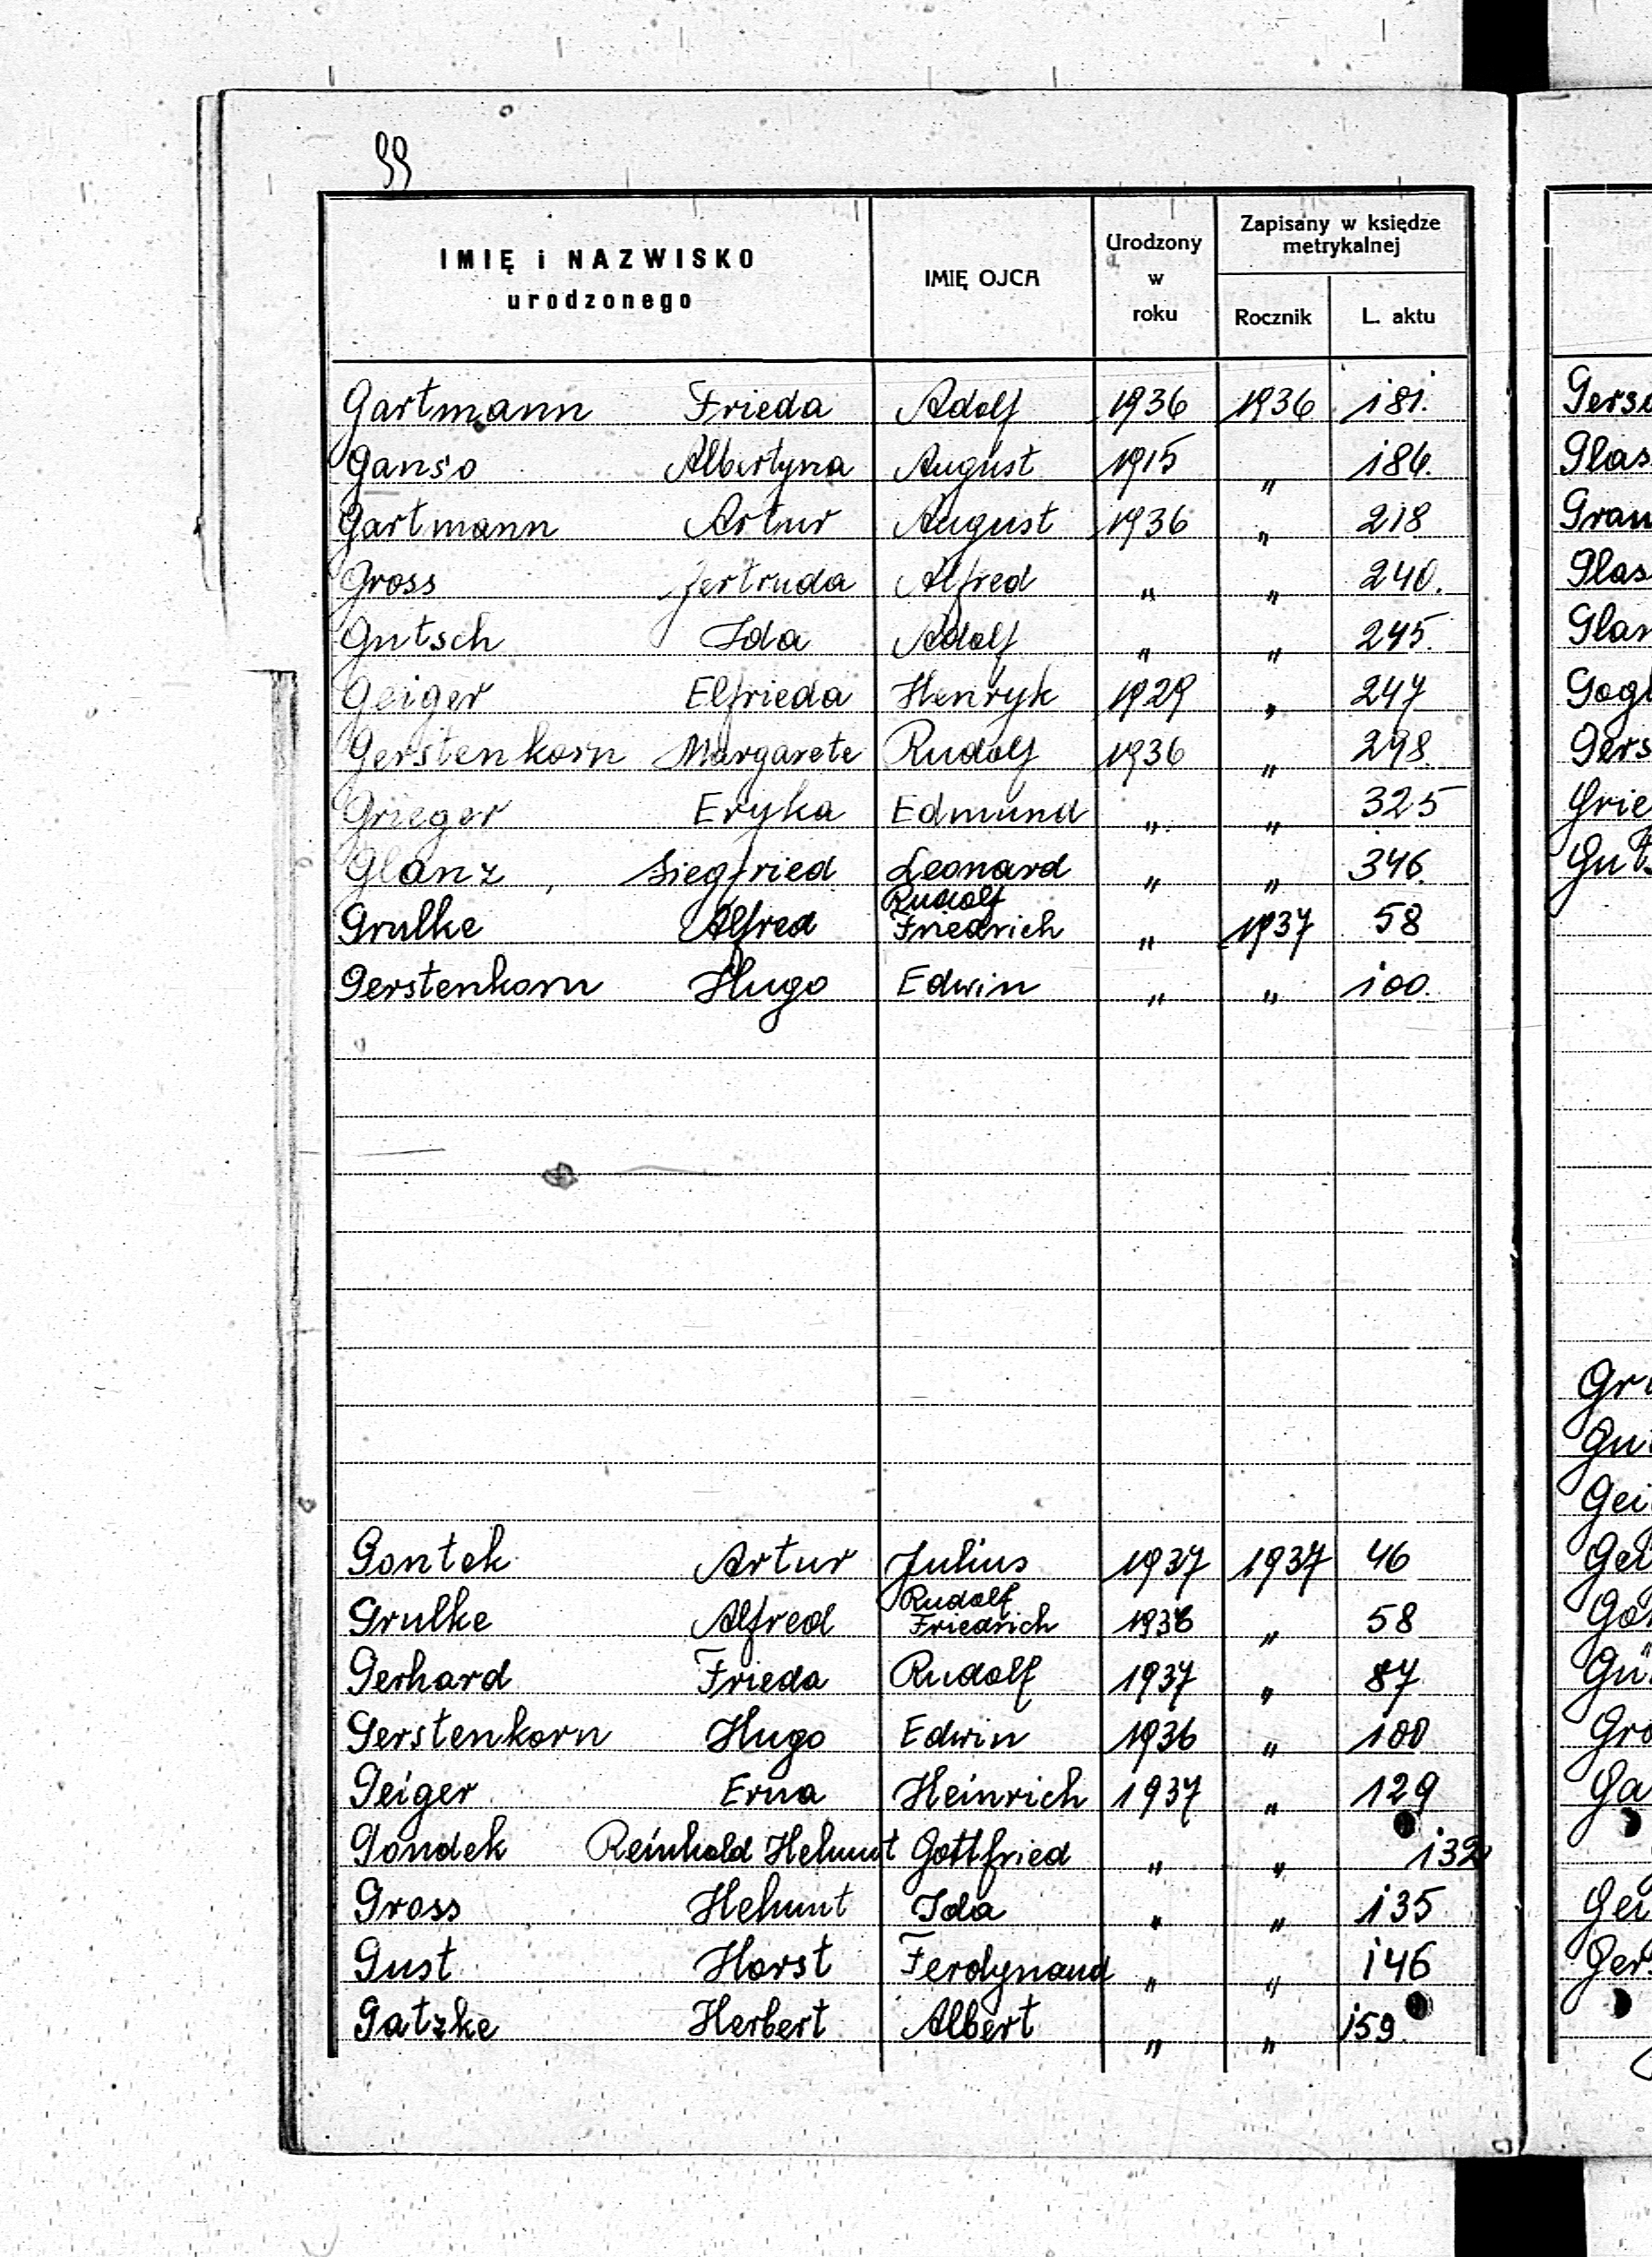 99
IMIĘ i NAZWISKO
urodzonego
IMIĘ OJCA
Urodzony
w
roku
Zapisany w księdze
metrykalnej
Rocznik
L. aktu
Gartmann Frieda Adolf 1936 1936 181.
Ganso Albertyna August 1915 " 186.
Gartmann Artur August 1936 " 218
Gross Gertruda Alfred " " 240.
Gutsch Ida Adolf " " 245.
Geiger Elfrieda Henryk 1929 " 247
Gerstenkorn Margarete Rudolf 1936 " 298.
Grieger Eryka Edmund " " 325
Glanz, Siegfried Leonard " " 346.
Rudolf
Grulke Alfred Friedrich " 1937 58
Gerstenkorn Hugo Edwin " " 100.
Gontek Artur Julius 1937 1937 46
Rudolf
Grulke Alfred Friedrich 1936 " 58
Gerhard Frieda Rudolf 1937 " 87
Gerstenkorn Hugo Edwin 1936 " 100
Geiger Erna Heinrich 1937 " 129
Gondek Reinhold Helmut Gottfried " " 132
Gross Helmut Ida " " 135
Gust Horst Ferdynand " " 146
Gatzke Herbert Albert " " 159.